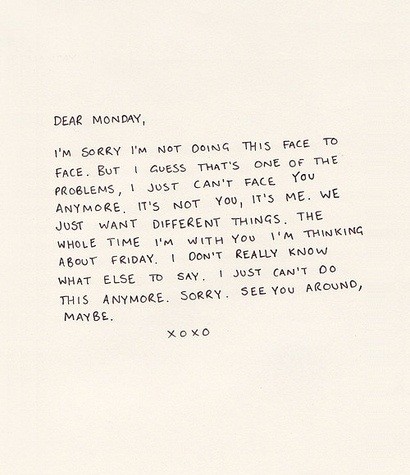 DEAR MONDAY,
I'M SORRY I'M NOT DOING THIS FACE TO
FACE. BUT I GUESS THAT'S ONE OF THE
PROBLEMS, I JUST CAN'T FACE YOU
ANYMORE. IT'S NOT YOU, IT'S ME. WE
JUST WANT DIFFERENT THINGS. THE
WHOLE TIME I'M WITH YOU I'M THINKING
ABOUT FRIDAY. I DON'T REALLY KNOW
WHAT ELSE TO SAY. I JUST CAN'T DO
THIS ANYMORE. SORRY. SEE YOU AROUND,
MAYBE.
XOXO